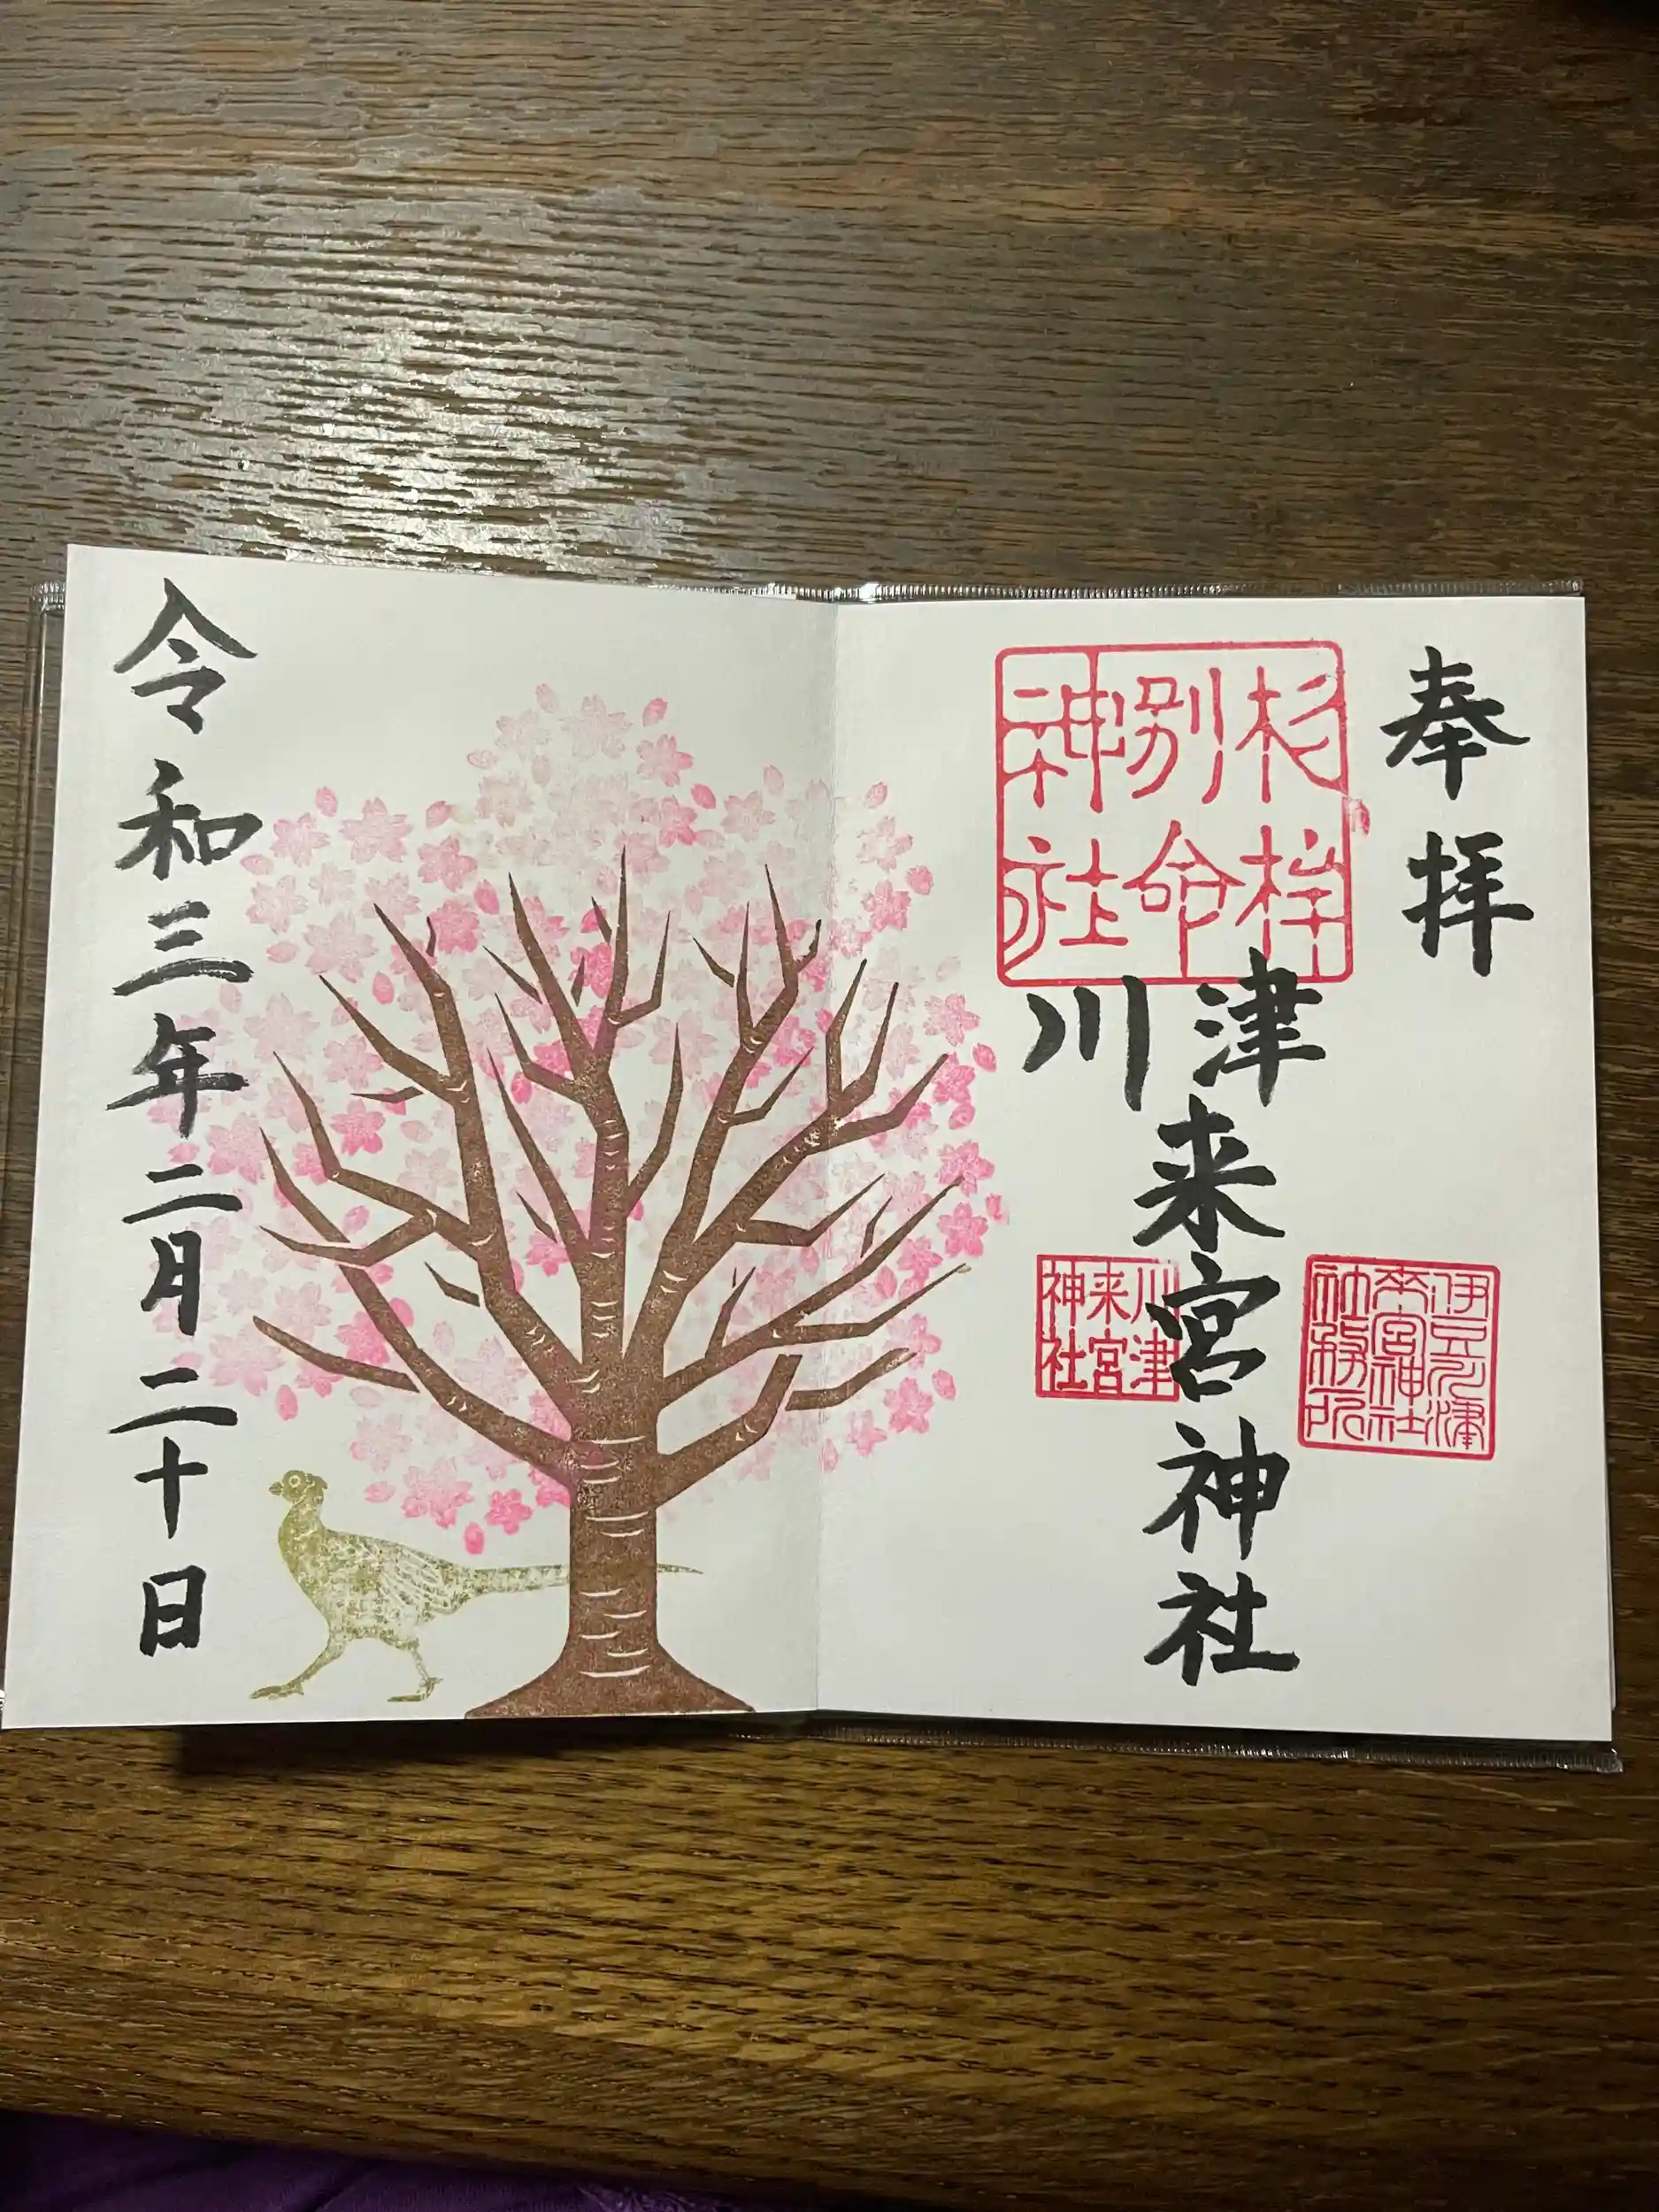 奉拝
杉桙
別命
神社
川津来宮神社
伊豆川津
来宮神社
社務所
川津
来宮
神社
令和三年二月二十日